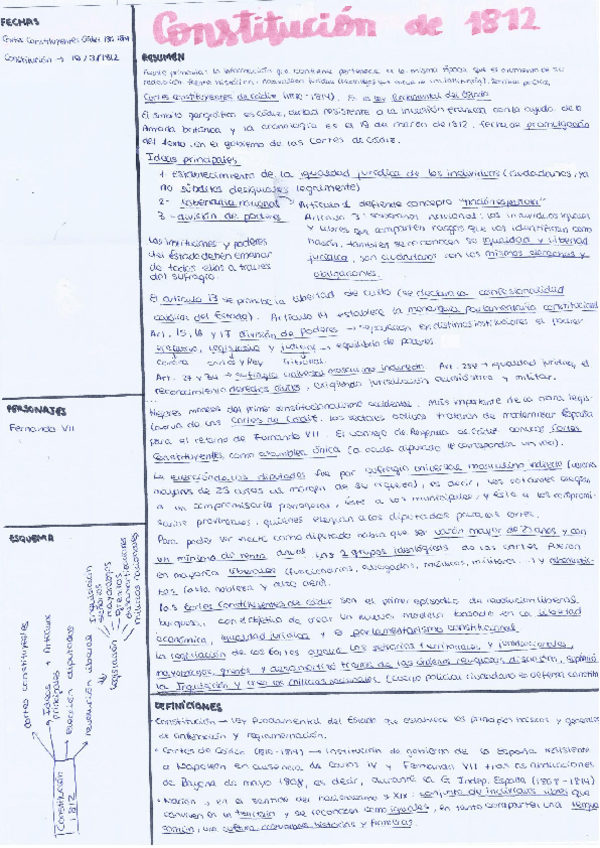 Constitución de 1812
FECHAS
Cortes Constituyentes Cádiz 1810-1814
Constitución → 19/3/1812
RESUMEN
Cortes constituyentes de Cádiz (1810-1814). Es la ley fundamental del Estado
El ámbito geográfico es Cádiz, ciudad resistente a la invasión francesa con la ayuda de la
Armada británica y la cronología es el 19 de marzo de 1812, fecha de promulgación
del texto, en el gobierno de las Cortes de Cádiz.
Ideas principales
1- Establecimiento de la igualdad jurídica de los individuos (ciudadanos, ya
no súbditos desiguales legalmente)
2- soberanía nacional Artículo 1 defiende concepto "nación española"
3- división de poderes Artículo 3: soberanía nacional: los individuos iguales
y libres que comparten rasgos que los identifican como
nación, también se reconocen su igualdad y libertad
jurídica, son ciudadanos con los mismos derechos y
obligaciones.
Las instituciones y poderes
del Estado deben emanar
de todos ellos a través
del sufragio.
El artículo 12 se prohíbe la libertad de culto (se declara la confesionalidad
católica del Estado). Artículo 14 establece la monarquía parlamentaria constitucional
Art. 15, 16 y 17 división de poderes → separación en distintas instituciones el poder
ejecutivo, legislativo y judicial → equilibrio de poderes
Cortes y Rey tribunal
sufragio universal masculino indirecto. igualdad jurídica, el
reconocimiento derechos civiles, jurisdicción eclesiástica y militar.
PERSONAJES
Fernando VII
Cortes de Cádiz. los sectores trataron de modernizar España
para el retorno de Fernando VII. El consejo de Regencia de Cádiz convocó Cortes
Constituyentes como asamblea única (a cada diputado le correspondía un voto).
La elección de los diputados fue por sufragio universal masculino indirecto (varones
mayores de 25 años al margen de su riqueza), es decir, los votantes elegían
a un compromisario parroquial, éste a los municipales, y éste a los compromi-
sarios provinciales, quienes elegían a los diputados para las cortes.
Para poder ser electo como diputado había que ser varón mayor de 25 años y con
un mínimo de renta anual. Los 2 grupos ideológicos de las cortes fueron
en mayoría liberales (funcionarios, abogados, médicos, militares...) y absolutis-
tas (alta nobleza y alto clero).
Las Cortes Constituyentes de Cádiz son el primer episodio de revolución liberal
burguesa, con objetivo de crear un nuevo modelo basado en la libertad
económica, igualdad jurídica y el parlamentarismo constitucional.
La legislación de las Cortes abolió los señoríos territoriales y jurisdiccionales,
mayorazgos, gremios y
la Inquisición y creó las milicias nacionales (cuerpo policial ciudadano
ESQUEMA
Constitución 1812
cortes constituyentes
Ideas principales + Artículos
elección diputados
revolución liberal
legislación
Inquisición
señoríos
mayorazgos
gremios
desamortizaciones
milicias nacionales
DEFINICIONES
· Constitución → Ley fundamental del Estado que establece los principios básicos y generales
de ordenación y reglamentación.
· Cortes de Cádiz (1810-1814) → institución de gobierno de la España resistente
a Napoleón en ausencia de Carlos IV y Fernando VII tras las abdicaciones
de Bayona de mayo 1808, es decir, durante la G. Indep. España (1808-1814)
· Nación → en el sentido del nacionalismo s. XIX: conjunto de individuos libres que
conviven en un territorio y se reconocen como iguales, en tanto comparten una lengua
común, una cultura